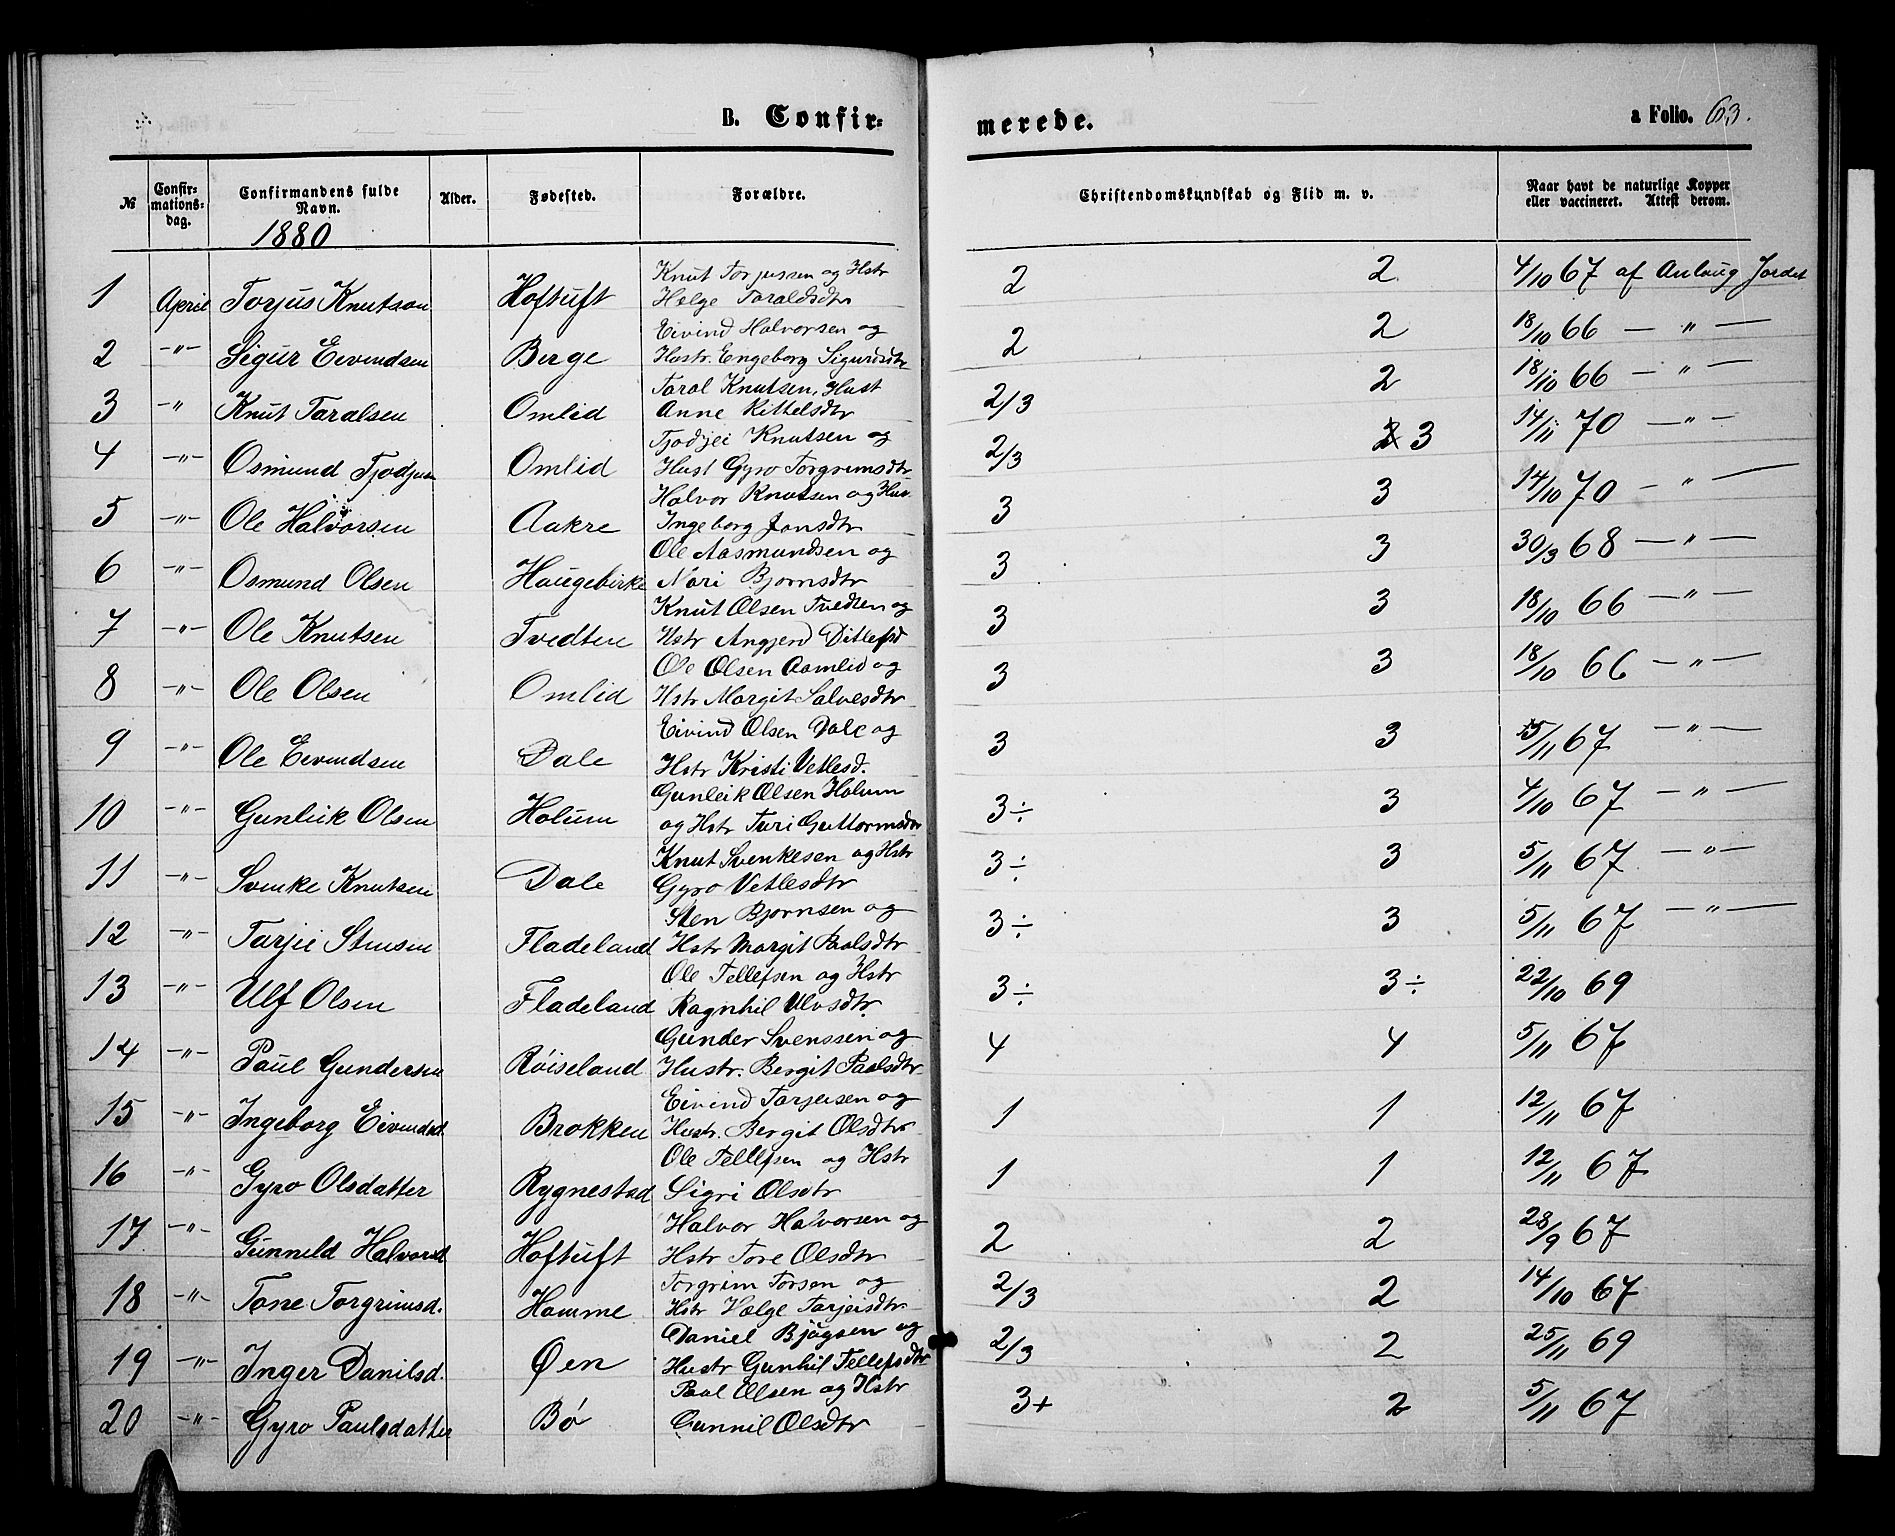 B. Confir-
merede.
a Folio. 63.
№ Confir-mations-dag. Confirmandens fulde Navn. Alder. Fødested. Forældre. Christendomskundskab og Flid m. v. Naar havt de naturlige Kopper eller vaccineret. Attest derom.
1880
Knut Torjussen og Hstr
1 April Torjus Knutson Hoftuft Helge Taraldsdtr 2 2 4/10 67 af Anlaug Jordet
Eivind Halvorsen og
2 -"- Sigur Eivendsen Berge Hustr. Engeborg Sigurdsdtr 2 2 18/10 66 — " —
Taral Knutsen, Hust
3 -" Knut Taralsen Omlid Anne Kittelsdtr 2/3 2 18/10 66 — " —
Tjodjei Knutsen og
4 -"- Osmund Tjodjusen Omlid Hust Gyro Torgrimsdtr 2/3 3 14/11 70 — " —
Halvor Knutsen og Hus.
5 -"- Ole Halvorsen Aakre Ingeborg Jonsdtr 3 3 14/10 70 — " —
Ole Aasmundsen og
6 -"- Osmund Olsen Haugebirke Nari Bjornsdtr 3 3 30/3 68 — " —
Knut Olsen Tvedten og
7 -"- Ole Knutsen Tvedten Hstr Angjerd Ditlefsd 3 3 18/10 66 — " —
Ole Olsen Aamlid og
8 -"- Ole Olsen Omlid Hstr Margit Salvesdtr 3 3 18/10 66 — " —
Eivind Olsen Dale og
9 -"- Ole Eivendsen Dale Hstr Kristi Vetlesd. 3 3 5/11 67 — " —
Gunleik Olsen Holum
10 -"- Gunleik Olsen Holum og Hstr Turi Guttormsdtr 3÷ 3 4/10 67 — " —
Knut Svenkesen og Hstr
11 -"- Svenke Knutsen Dale Gyro Vetlesdtr 3÷ 3 5/11 67 — " —
Sten Bjornsen og
12 -"- Tarjei Stensen Fladeland Hstr Margit Paalsdtr 3÷ 3 5/11 67 — " —
Ole Tellefsen og Hstr
13 -"- Ulf Olsen Fladeland Ragnhil Ulvsdtr. 3÷ 3÷ 22/10 69
Gunder Svenssen og
14 -"- Paul Gundersen Røiseland Hustr. Bergit Paalsdtr 4 4 5/11 67
Eivind Tarjeisen og
15 -"- Ingeborg Eivendsd. Brokken Hustr. Bergit Olsdtr 1 1 12/11 67
Ole Tellefsen og Hstr
16 -"- Gyro Olsdatter Rygnestad Sigri Olsdtr 1 1 12/11 67
Halvor Halvorsen og
17 -"- Gunneld Halvorsd Hoftuft Hstr Tore Olsdtr 2 2 28/9 67
Torgrim Torsen og
18 -"- Tone Torgrimsd. Homme Hstr Hælge Tarjeisdtr 2/3 2 14/10 67
Daniel Bjúgsen og
19 -"- Inger Danilsd. Øen Hustr Gunhil Tellefsdtr 2/3 2 25/11 69
Paal Olsen og Hstr
20 -"- Gyro Paulsdatter Bø Gunnil Olsdtr 3+ 2 5/11 67